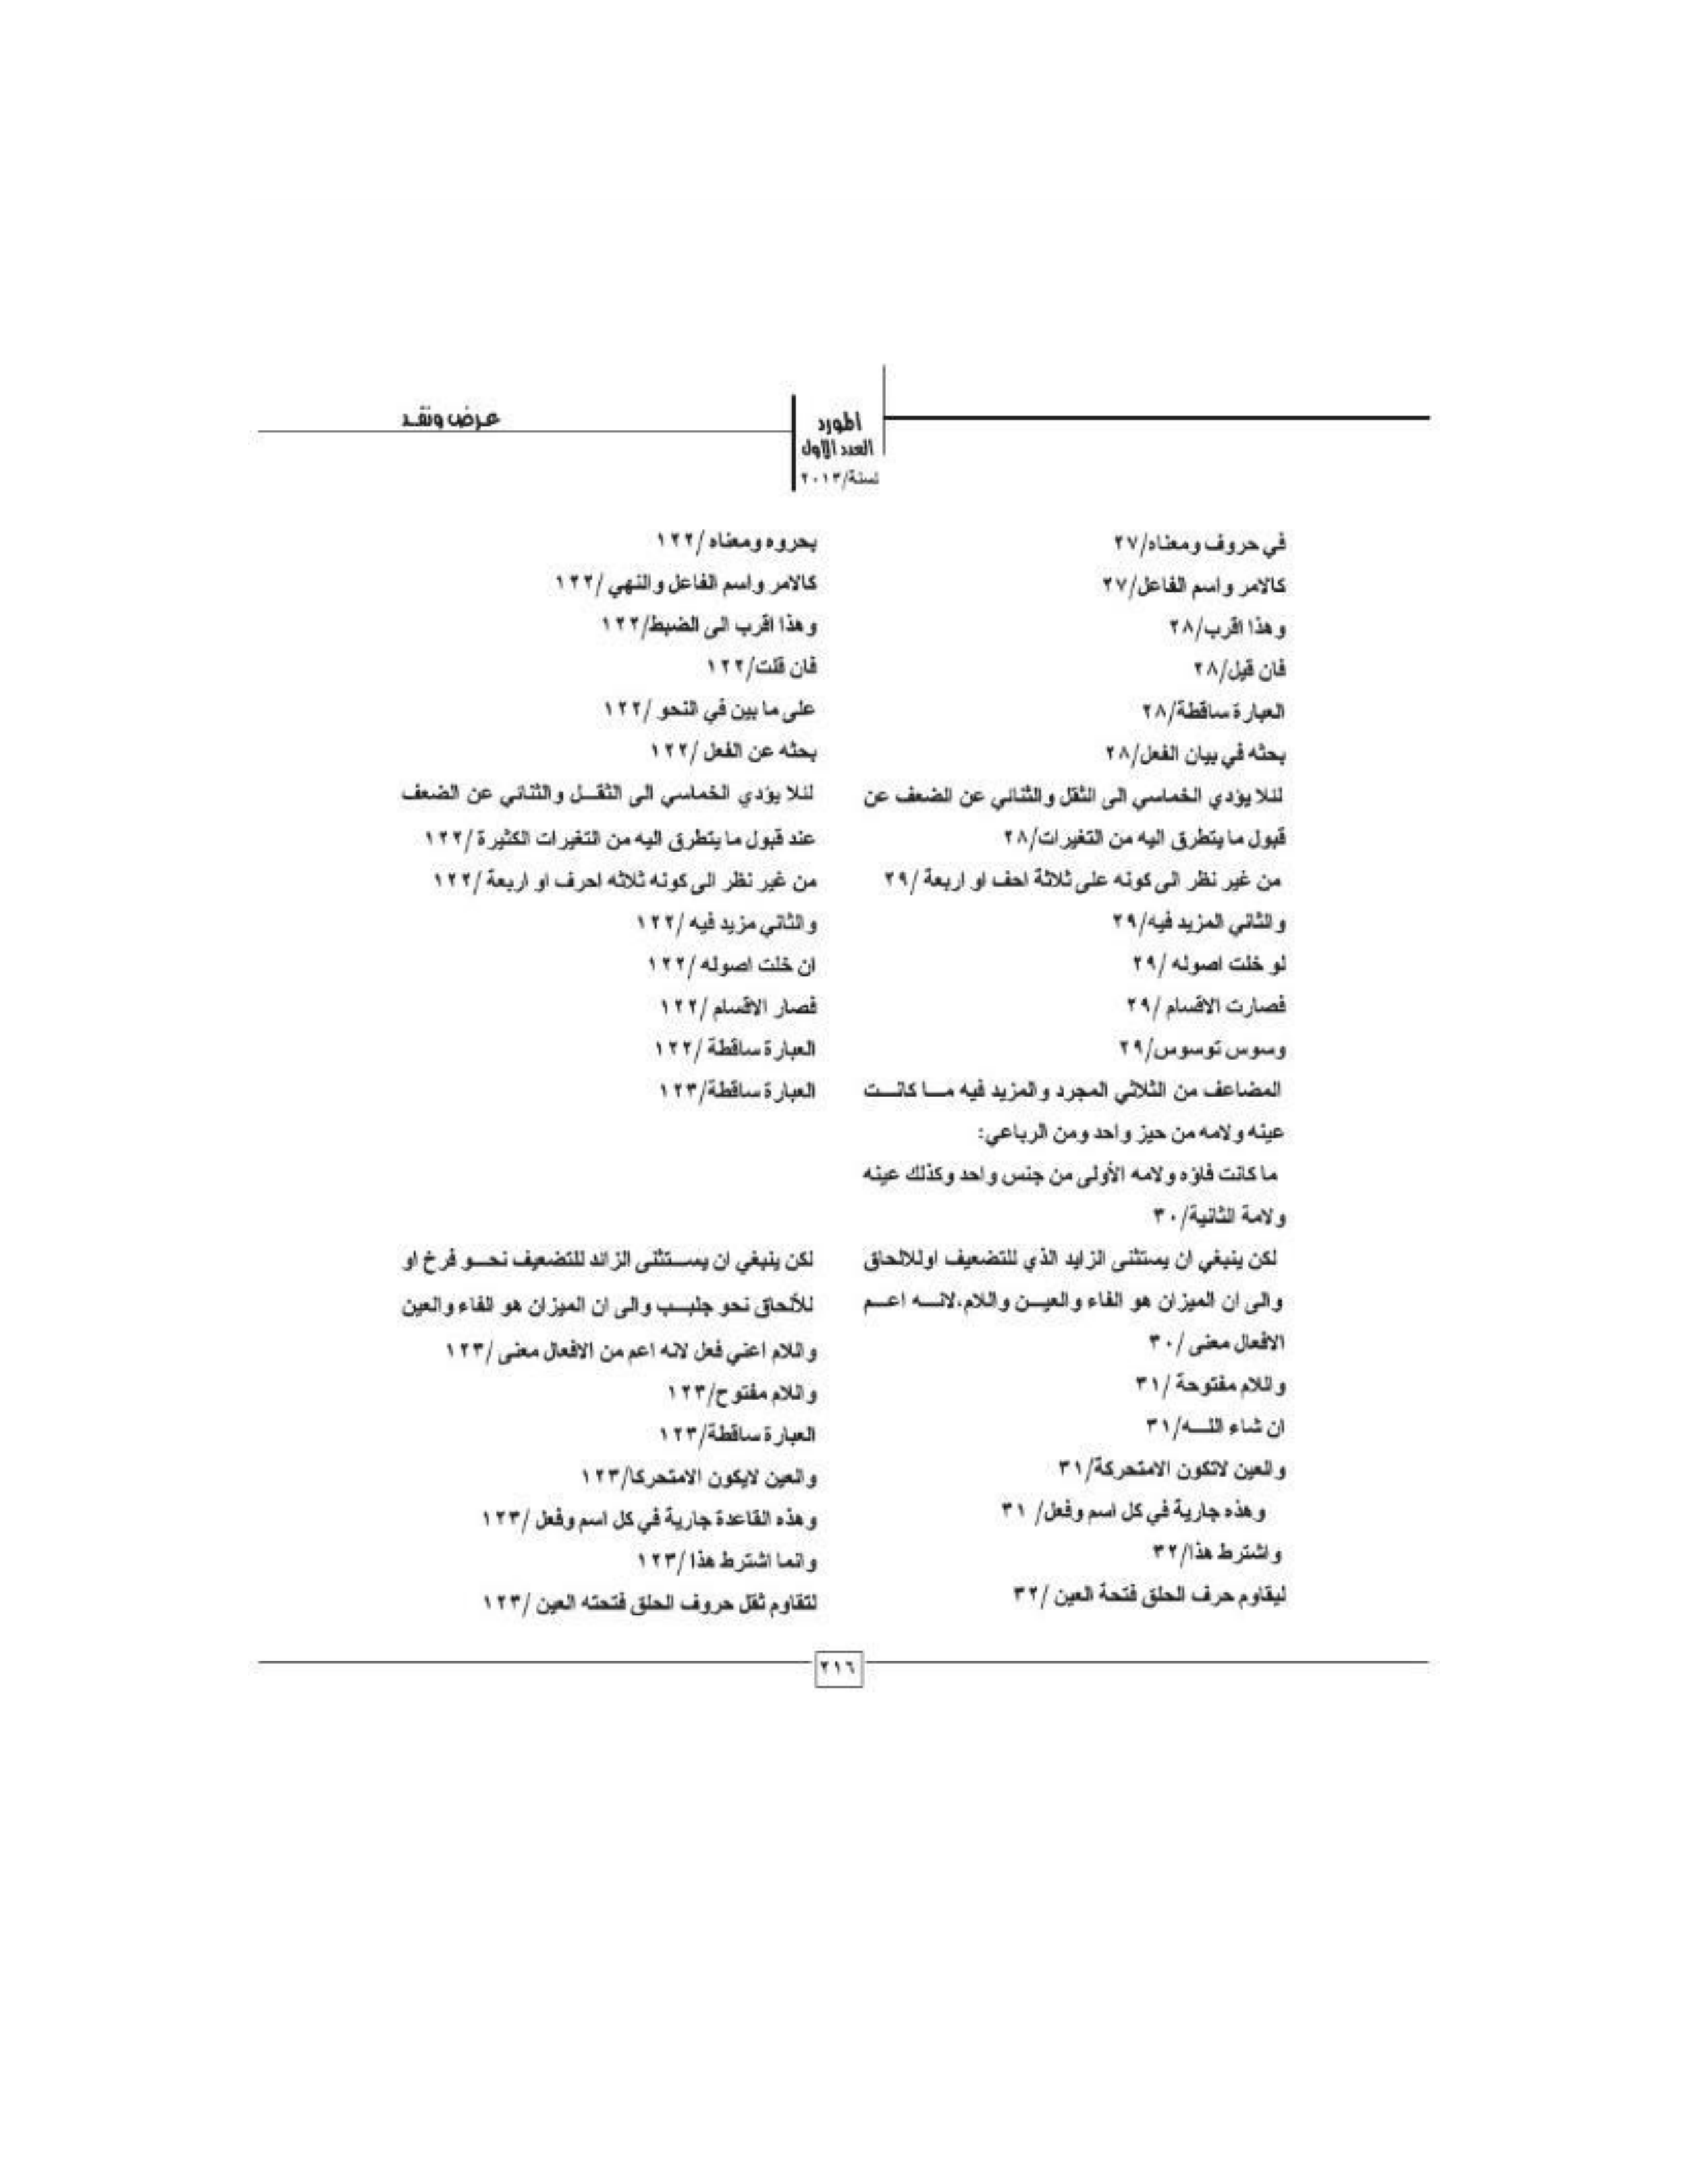 المورد
العدد الاول
لسنة/٢٠١٣
عرض ونقد
في حروف ومعناه/٢٧
كالامر واسم الفاعل/٢٧
وهذا اقرب/٢٨
فان قيل/٢٨
العبارة ساقطة/٢٨
بحثه في بيان الفعل/٢٨
لئلا يؤدي الخماسي الى الثقل والثنائي عن الضعف عن
قبول ما يتطرق اليه من التغيرات/٢٨
من غير نظر الى كونه على ثلاثة احف او اربعة /٢٩
والثاني المزيد فيه/٢٩
لو خلت اصوله /٢٩
فصارت الاقسام /٢٩
وسوس توسوس/٢٩
المضاعف من الثلاثي المجرد والمزيد فيه مـا كانـت
عينه ولامه من حيز واحد ومن الرباعي:
ما كانت فاؤه ولامه الأولى من جنس واحد وكذلك عينه
ولامة الثانية/٣٠
لكن ينبغي ان يستثنى الزايد الذي للتضعيف اوللالحاق
والى ان الميزان هو الفاء والعيـن واللام،لانـه اعـم
الافعال معنى /٣٠
واللام مفتوحة /٣١
ان شاء اللـه/٣١
والعين لاتكون الامتحركة/٣١
وهذه جارية في كل اسم وفعل/ ٣١
واشترط هذا/٣٢
ليقاوم حرف الحلق فتحة العين /٣٢
بحروه ومعناه /١٢٢
كالامر واسم الفاعل والنهي /١٢٢
وهذا اقرب الى الضبط/١٢٢
فان قلت/١٢٢
على ما بين في النحو /١٢٢
بحثه عن الفعل /١٢٢
لئلا يؤدي الخماسي الى الثقـل والثنائي عن الضعف
عند قبول ما يتطرق اليه من التغيرات الكثيرة /١٢٢
من غير نظر الى كونه ثلاثه احرف او اربعة /١٢٢
والثاني مزيد فيه /١٢٢
ان خلت اصوله /١٢٢
فصار الاقسام /١٢٢
العبارة ساقطة /١٢٢
العبارة ساقطة/١٢٣
لكن ينبغي ان يسـتثنى الزائد للتضعيف نحـو فرخ او
للألحاق نحو جلبـب والى ان الميزان هو الفاء والعين
واللام اعني فعل لانه اعم من الافعال معنى /١٢٣
واللام مفتوح/١٢٣
العبارة ساقطة/١٢٣
والعين لايكون الامتحركا/١٢٣
وهذه القاعدة جارية في كل اسم وفعل /١٢٣
وانما اشترط هذا /١٢٣
لتقاوم ثقل حروف الحلق فتحته العين /١٢٣
٢١٦